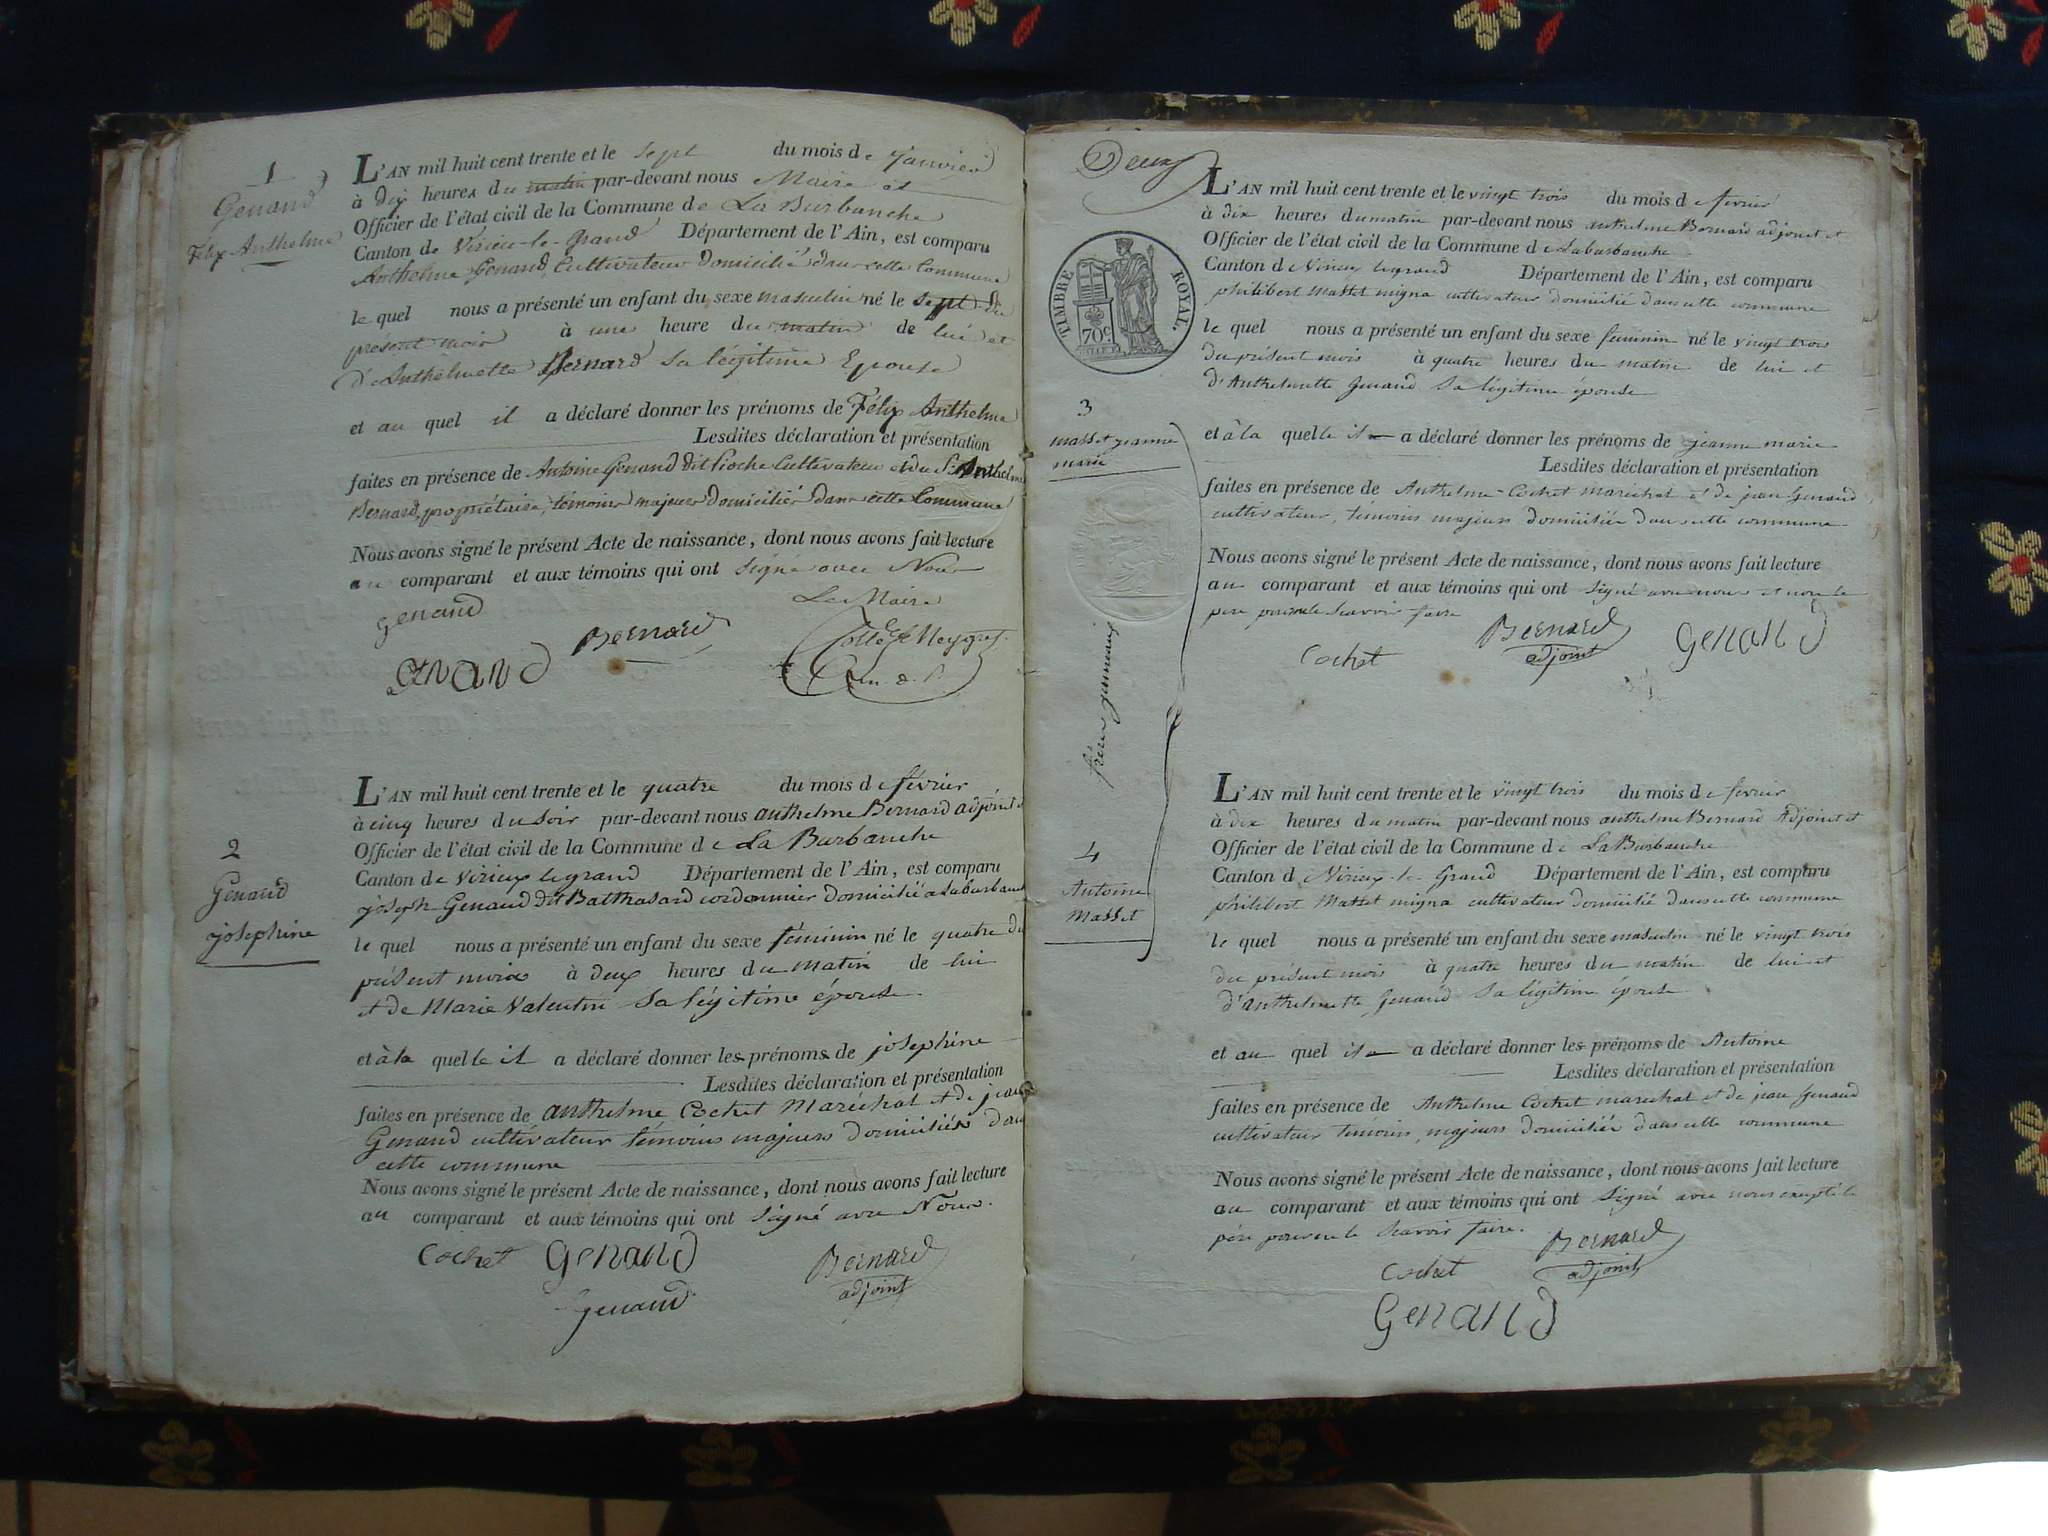 1
Genand
Félix Anthelme
L'AN mil huit cent trente et le sept du mois de janvier
à dix heures du matin par-devant nous Maire et
Officier de l'état civil de la Commune de La Burbanche
Canton de Virieu-le-grand Département de l'Ain, est comparu
Anthelme Genand, Cultivateur domicilié dans cette Commune
le quel nous a présenté un enfant du sexe masculin né le sept du
present mois à une heure du matin de lui et
d'Anthelmette Bernard sa légitime Epouse
et au quel il a déclaré donner les prénoms de Félix Anthelme
Lesdites déclaration et présentation
faites en présence de Antoine Genand dit Pioche Cultivateur et du Sr Anthelme
Bernard, propriétaire, témoins majeurs domiciliés dans cette Commune
Nous avons signé le présent Acte de naissance, dont nous avons fait lecture
au comparant et aux témoins qui ont signé avec Nous
genand
Le Maire
Bernard
Genand
2
Genand
josephine
L'AN mil huit cent trente et le quatre du mois de février
à cinq heures du soir par-devant nous anthelme Bernard adjoint et
Officier de l'état civil de la Commune de La Burbanche
Canton de Virieux legrand Département de l'Ain, est comparu
joseph Genand dit Balthasard cordonnier domicilié a Laburbanche
le quel nous a présenté un enfant du sexe féminin né le quatre du
présent mois à deux heures du matin de lui
et de Marie Valentin sa légitime épouse
et à la quelle il a déclaré donner les prénoms de josephine
Lesdites déclaration et présentation
faites en présence de anthelme Cochet Maréchal et de jean
Genand cultivateur témoins majeurs domiciliés dans
cette commune
Nous avons signé le présent Acte de naissance, dont nous avons fait lecture
au comparant et aux témoins qui ont signé avec Nous.
Cochet Genand Bernard
adjoint
Genand
Deux
TIMBRE ROYAL.
70c
L'AN mil huit cent trente et le vingt trois du mois de fevrier
à dix heures du matin par-devant nous anthelme Bernard adjoint et
Officier de l'état civil de la Commune de Laburbanche
Canton de Virieux legrand Département de l'Ain, est comparu
philibert Masset migna cultivateur domicilié dans cette commune
le quel nous a présenté un enfant du sexe feminin né le vingt trois
du présent mois à quatre heures du matin de lui et
d'Anthelmette Genand sa légitime épouse
3
Masset jeanne
marie
et à la quelle il a déclaré donner les prénoms de jeanne marie
Lesdites déclaration et présentation
faites en présence de Anthelme Cochet maréchal et de jean Genand
cultivateur, temoins majeurs domiciliés dans cette commune
Nous avons signé le présent Acte de naissance, dont nous avons fait lecture
au comparant et aux témoins qui ont signé avec nous et non le
pere pour ne le scavoir faire
Cochet Bernard Genand
adjoint
4
Antoine
Masset
L'AN mil huit cent trente et le vingt trois du mois de fevrier
à dix heures du matin par-devant nous anthelme Bernard Adjoint et
Officier de l'état civil de la Commune de La Burbanche
Canton de Virieux-le-Grand Département de l'Ain, est comparu
philibert Masset migna cultivateur domicilié dans cette commune
le quel nous a présenté un enfant du sexe masculin né le vingt trois
du présent mois à quatre heures du matin de lui et
d'anthelmette Genand sa légitime épouse
et au quel il a déclaré donner les prénoms de Antoine
Lesdites déclaration et présentation
faites en présence de Anthelme Cochet marechal et de jean Genand
cultivateur temoins majeurs domiciliés dans cette commune
Nous avons signé le présent Acte de naissance, dont nous avons fait lecture
au comparant et aux témoins qui ont signé avec nous excepté le
père pour ne le scavoir faire.
Cochet Bernard
adjoint
Genand